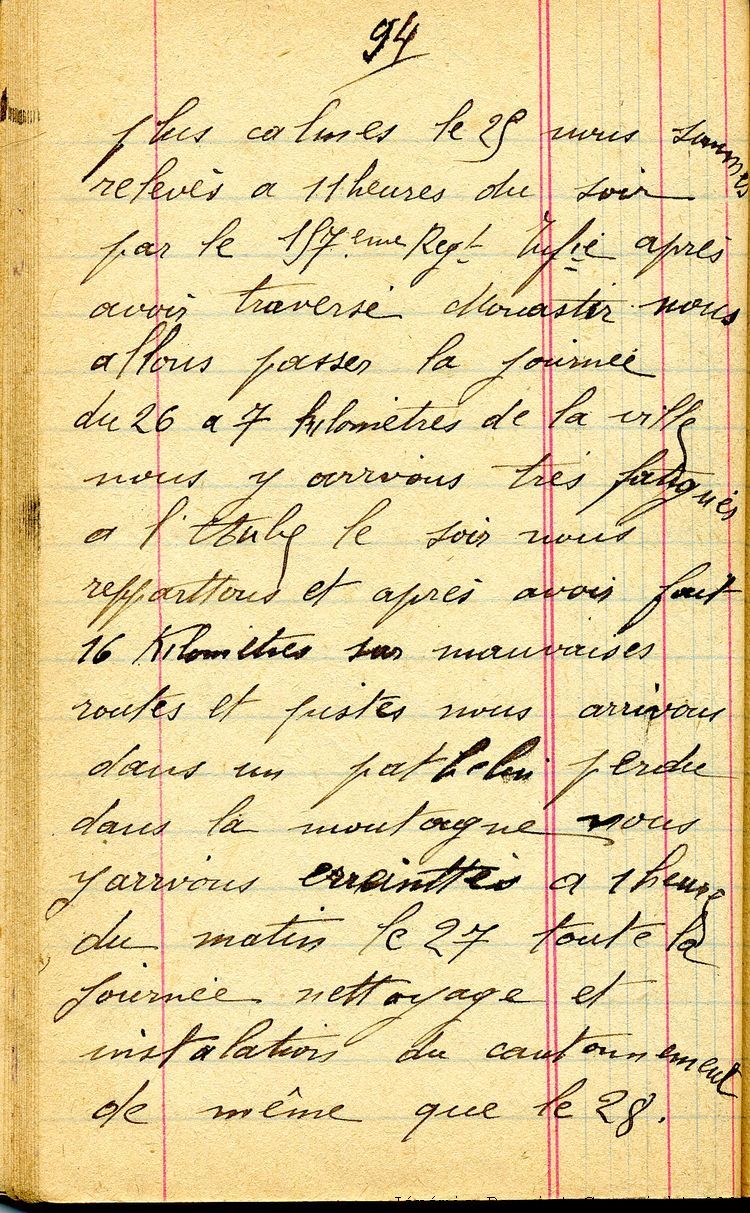 94
plus calmes le 25 nous sommes
relevés a 11 heures du soir
par le 157eme Regt Infie après
avoir traversé Monastir nous
allons passer la journée
du 26 a 7 kilomètres de la ville
nous y arrivons très fatigués
a l'Aube le soir nous
reppartons et après avoir fait
16 Kilomètres sur mauvaises
routes et pistes nous arrivons
dans un pattelin perdu
dans la montagne nous
y arrivons erreintés a 1 heure
du matin le 27 toute la
journée nettoyage et
instalation du cantonnement
de même que le 28.